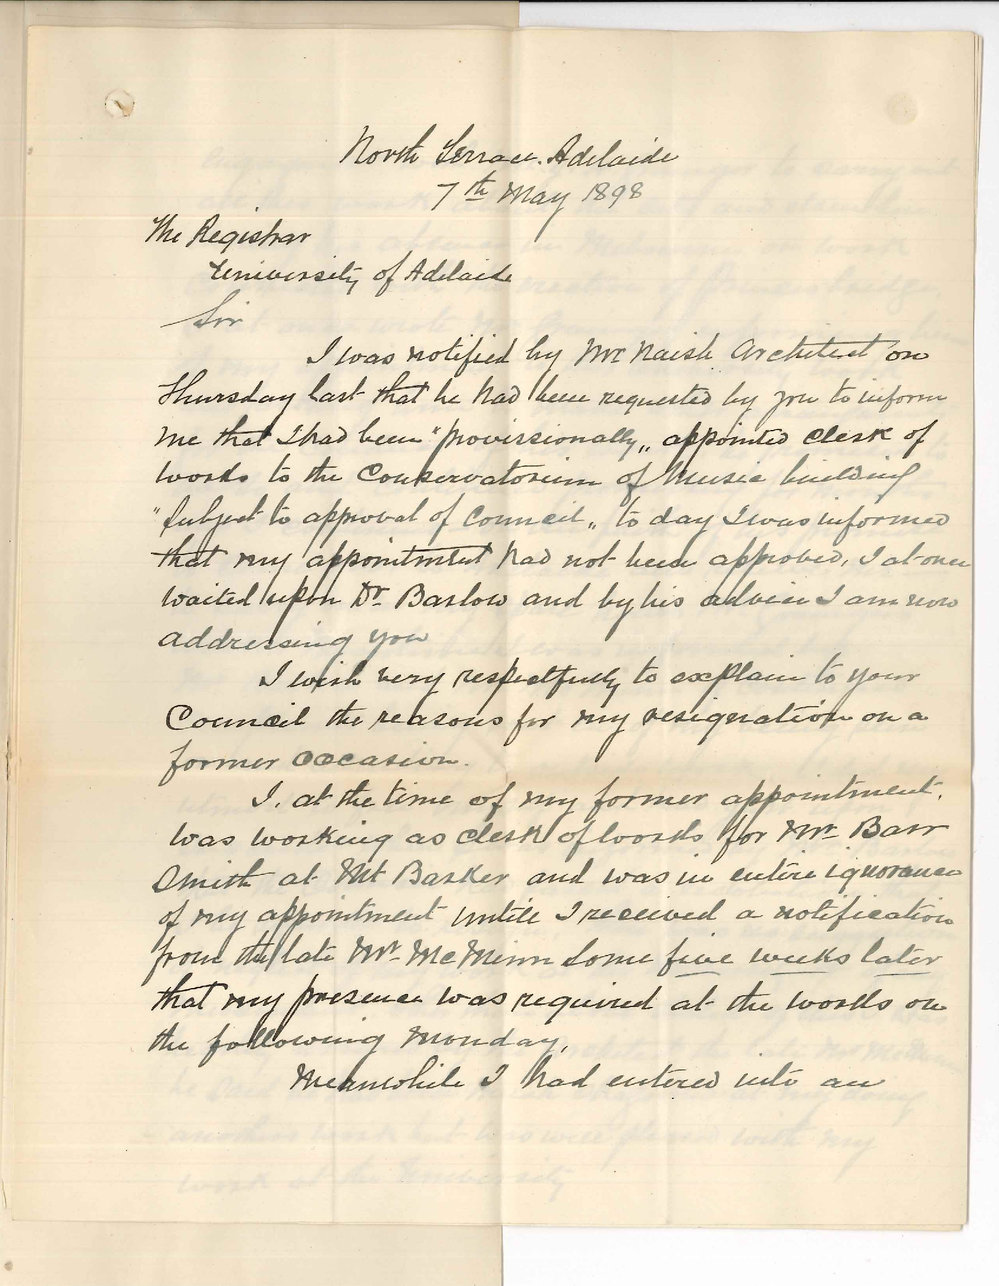 North Terrace. Adelaide
7th May 1898
The Registrar
University of Adelaide
Sir
I was notified by Mr Naish Architect on
Thursday last that he had been requested by you to inform
me that I had been "provissionally„ appointed clerk of
works to the Conservatorium of Music building
"Subject to approval of Council„ to day I was informed
that my appointment had not been approved, I at once
waited upon Dr Barlow and by his advice I am now
addressing you
I wish very respectfully to explain to your
Council the reasons for my resignation on a
former occasion.
I, at the time of my former appointment,
was working as clerk of works for Mr Barr
Smith at Mt Barker and was in entire ignorance
of my appointment untill I received a notification
from the late Mr McMinn some five weeks later
that my presence was required at the works on
the following Monday,
Meanwhile I had entered into an